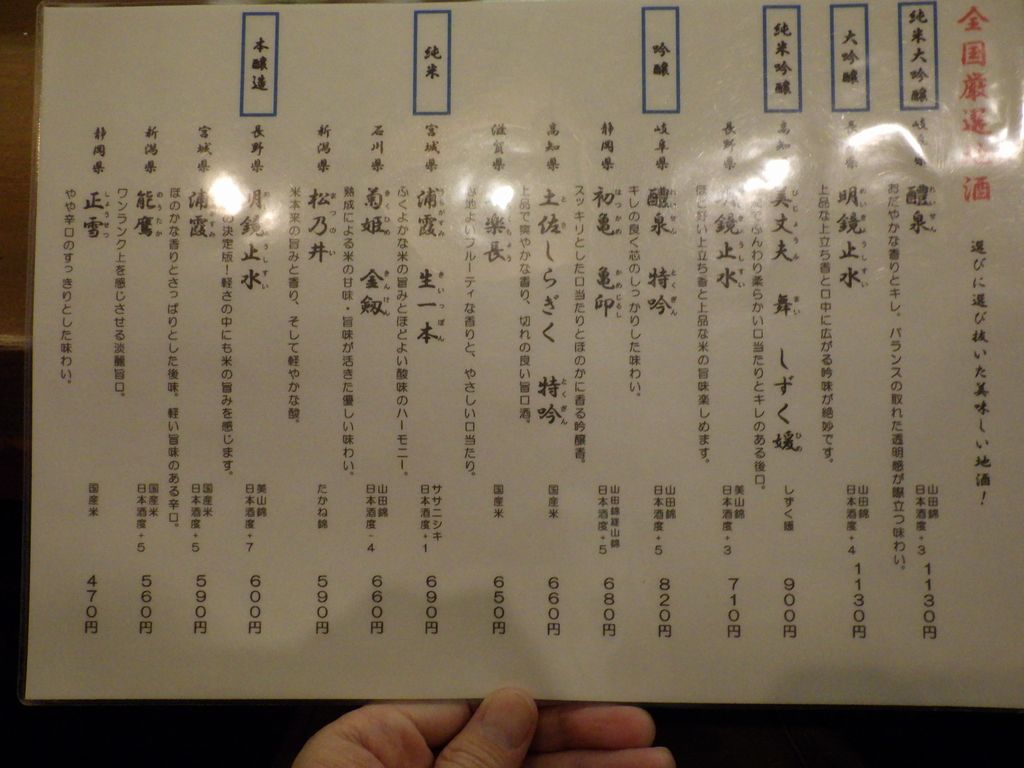 全国厳選地酒
選びに選び抜いた美味しい地酒！
純米大吟醸
岐阜県 醴泉 れいせん 山田錦 日本酒度+3 1130円
おだやかな香りとキレ。バランスの取れた透明感が際立つ味わい。
大吟醸
長野県 明鏡止水 めいきょうしすい 山田錦 日本酒度+4 1130円
上品な上立ち香と口中に広がる吟味が絶妙です。
純米吟醸
高知県 美丈夫 びじょうふ 舞 まい しずく媛 ひめ しずく媛 900円
でふんわり柔らかい口当たりとキレのある後口。
長野県 鏡止水 美山錦 日本酒度+3 710円
ほど好い上立ち香と上品な米の旨味楽しめます。
吟醸
岐阜県 醴泉 れいせん 特吟 とくぎん 山田錦 日本酒度+5 820円
キレの良く芯のしっかりした味わい。
静岡県 初亀 はつかめ 亀印 かめじるし 山田錦雄山錦 日本酒度+5 680円
スッキリとした口当たりとほのかに香る吟醸香。
高知県 土佐しらぎく とさ 特吟 とくぎん 国産米 660円
上品で爽やかな香り、切れの良い旨口酒。
滋賀県 楽長 国産米 650円
心地よいフルーティな香りと、やさしい口当たり。
純米
宮城県 浦霞 うらがすみ 生一本 きいっぽん ササニシキ 日本酒度+1 690円
ふくよかな米の旨みとほどよい酸味のハーモニー。
石川県 菊姫 きくひめ 金劔 きんけん 山田錦 日本酒度-4 660円
熟成による米の甘味・旨味が活きた優しい味わい。
新潟県 松乃井 まつのい たかね錦 590円
米本来の旨みと香り、そして軽やかな酸。
本醸造
長野県 明鏡止水 うしすい 美山錦 日本酒度+7 600円
の決定版！軽さの中にも米の旨みを感じます。
宮城県 浦霞 国産米 日本酒度+5 590円
ほのかな香りとさっぱりとした後味。軽い旨味のある辛口。
新潟県 能鷹 のうたか 国産米 日本酒度+5 560円
ワンランク上を感じさせる淡麗旨口。
静岡県 正雪 しょうせつ 国産米 470円
やや辛口のすっきりとした味わい。